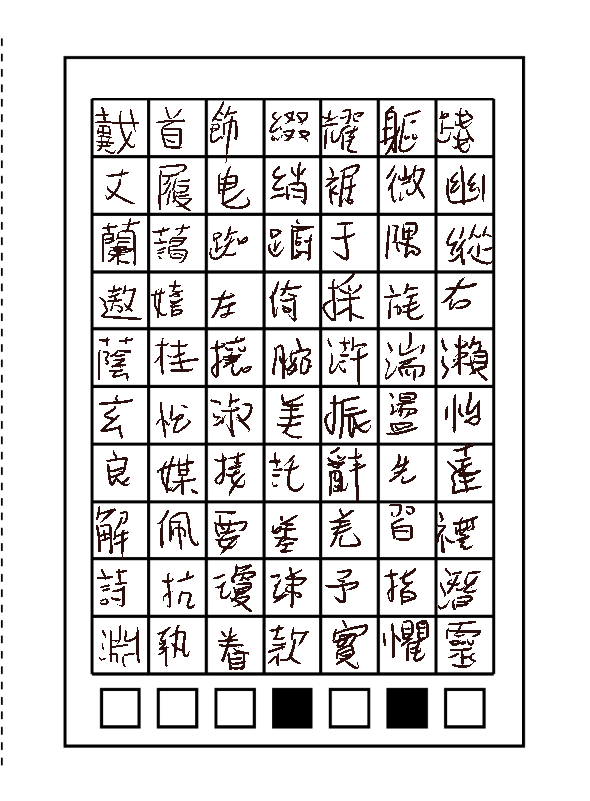 戴首飾綴耀軀踐
文履曳綃裾微幽
蘭藹踟躕于隅縱
遨嬉左倚採旄右
蔭桂攘腕滸湍瀨
玄悅淑美振盪怡
良媒接託辭先達
解佩要嗟羌習禮
詩抗瓊珶予指潛
淵執眷款實懼靈